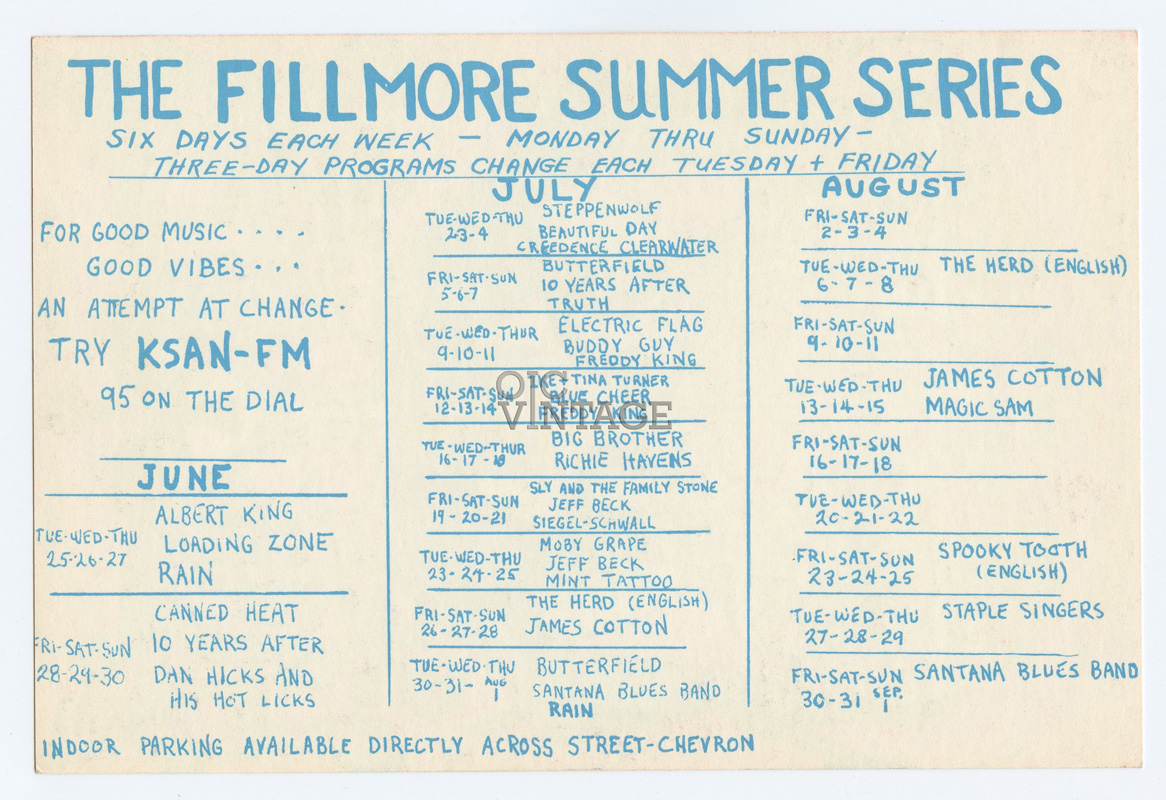 THE FILLMORE SUMMER SERIES
SIX DAYS EACH WEEK — MONDAY THRU SUNDAY —
THREE-DAY PROGRAMS CHANGE EACH TUESDAY + FRIDAY
FOR GOOD MUSIC · · · ·
GOOD VIBES · · ·
AN ATTEMPT AT CHANGE ·
TRY KSAN-FM
95 ON THE DIAL
JUNE
TUE-WED-THU
25-26-27
ALBERT KING
LOADING ZONE
RAIN
FRI-SAT-SUN
28-29-30
CANNED HEAT
10 YEARS AFTER
DAN HICKS AND
HIS HOT LICKS
JULY
TUE-WED-THU
2-3-4
STEPPENWOLF
BEAUTIFUL DAY
CREEDENCE CLEARWATER
FRI-SAT-SUN
5-6-7
BUTTERFIELD
10 YEARS AFTER
TRUTH
TUE-WED-THUR
9-10-11
ELECTRIC FLAG
BUDDY GUY
FREDDY KING
FRI-SAT-SUN
12-13-14
IKE + TINA TURNER
BLUE CHEER
FREDDY KING
OIC
VINTAGE
TUE-WED-THUR
16-17-18
BIG BROTHER
RICHIE HAVENS
FRI-SAT-SUN
19-20-21
SLY AND THE FAMILY STONE
JEFF BECK
SIEGEL-SCHWALL
TUE-WED-THU
23-24-25
MOBY GRAPE
JEFF BECK
MINT TATTOO
FRI-SAT-SUN
26-27-28
THE HERD (ENGLISH)
JAMES COTTON
TUE-WED-THU
30-31- AUG 1
BUTTERFIELD
SANTANA BLUES BAND
RAIN
AUGUST
FRI-SAT-SUN
2-3-4
TUE-WED-THU
6-7-8
THE HERD (ENGLISH)
FRI-SAT-SUN
9-10-11
TUE-WED-THU
13-14-15
JAMES COTTON
MAGIC SAM
FRI-SAT-SUN
16-17-18
TUE-WED-THU
20-21-22
FRI-SAT-SUN
23-24-25
SPOOKY TOOTH
(ENGLISH)
TUE-WED-THU
27-28-29
STAPLE SINGERS
FRI-SAT-SUN
30-31 SEP. 1
SANTANA BLUES BAND
INDOOR PARKING AVAILABLE DIRECTLY ACROSS STREET-CHEVRON